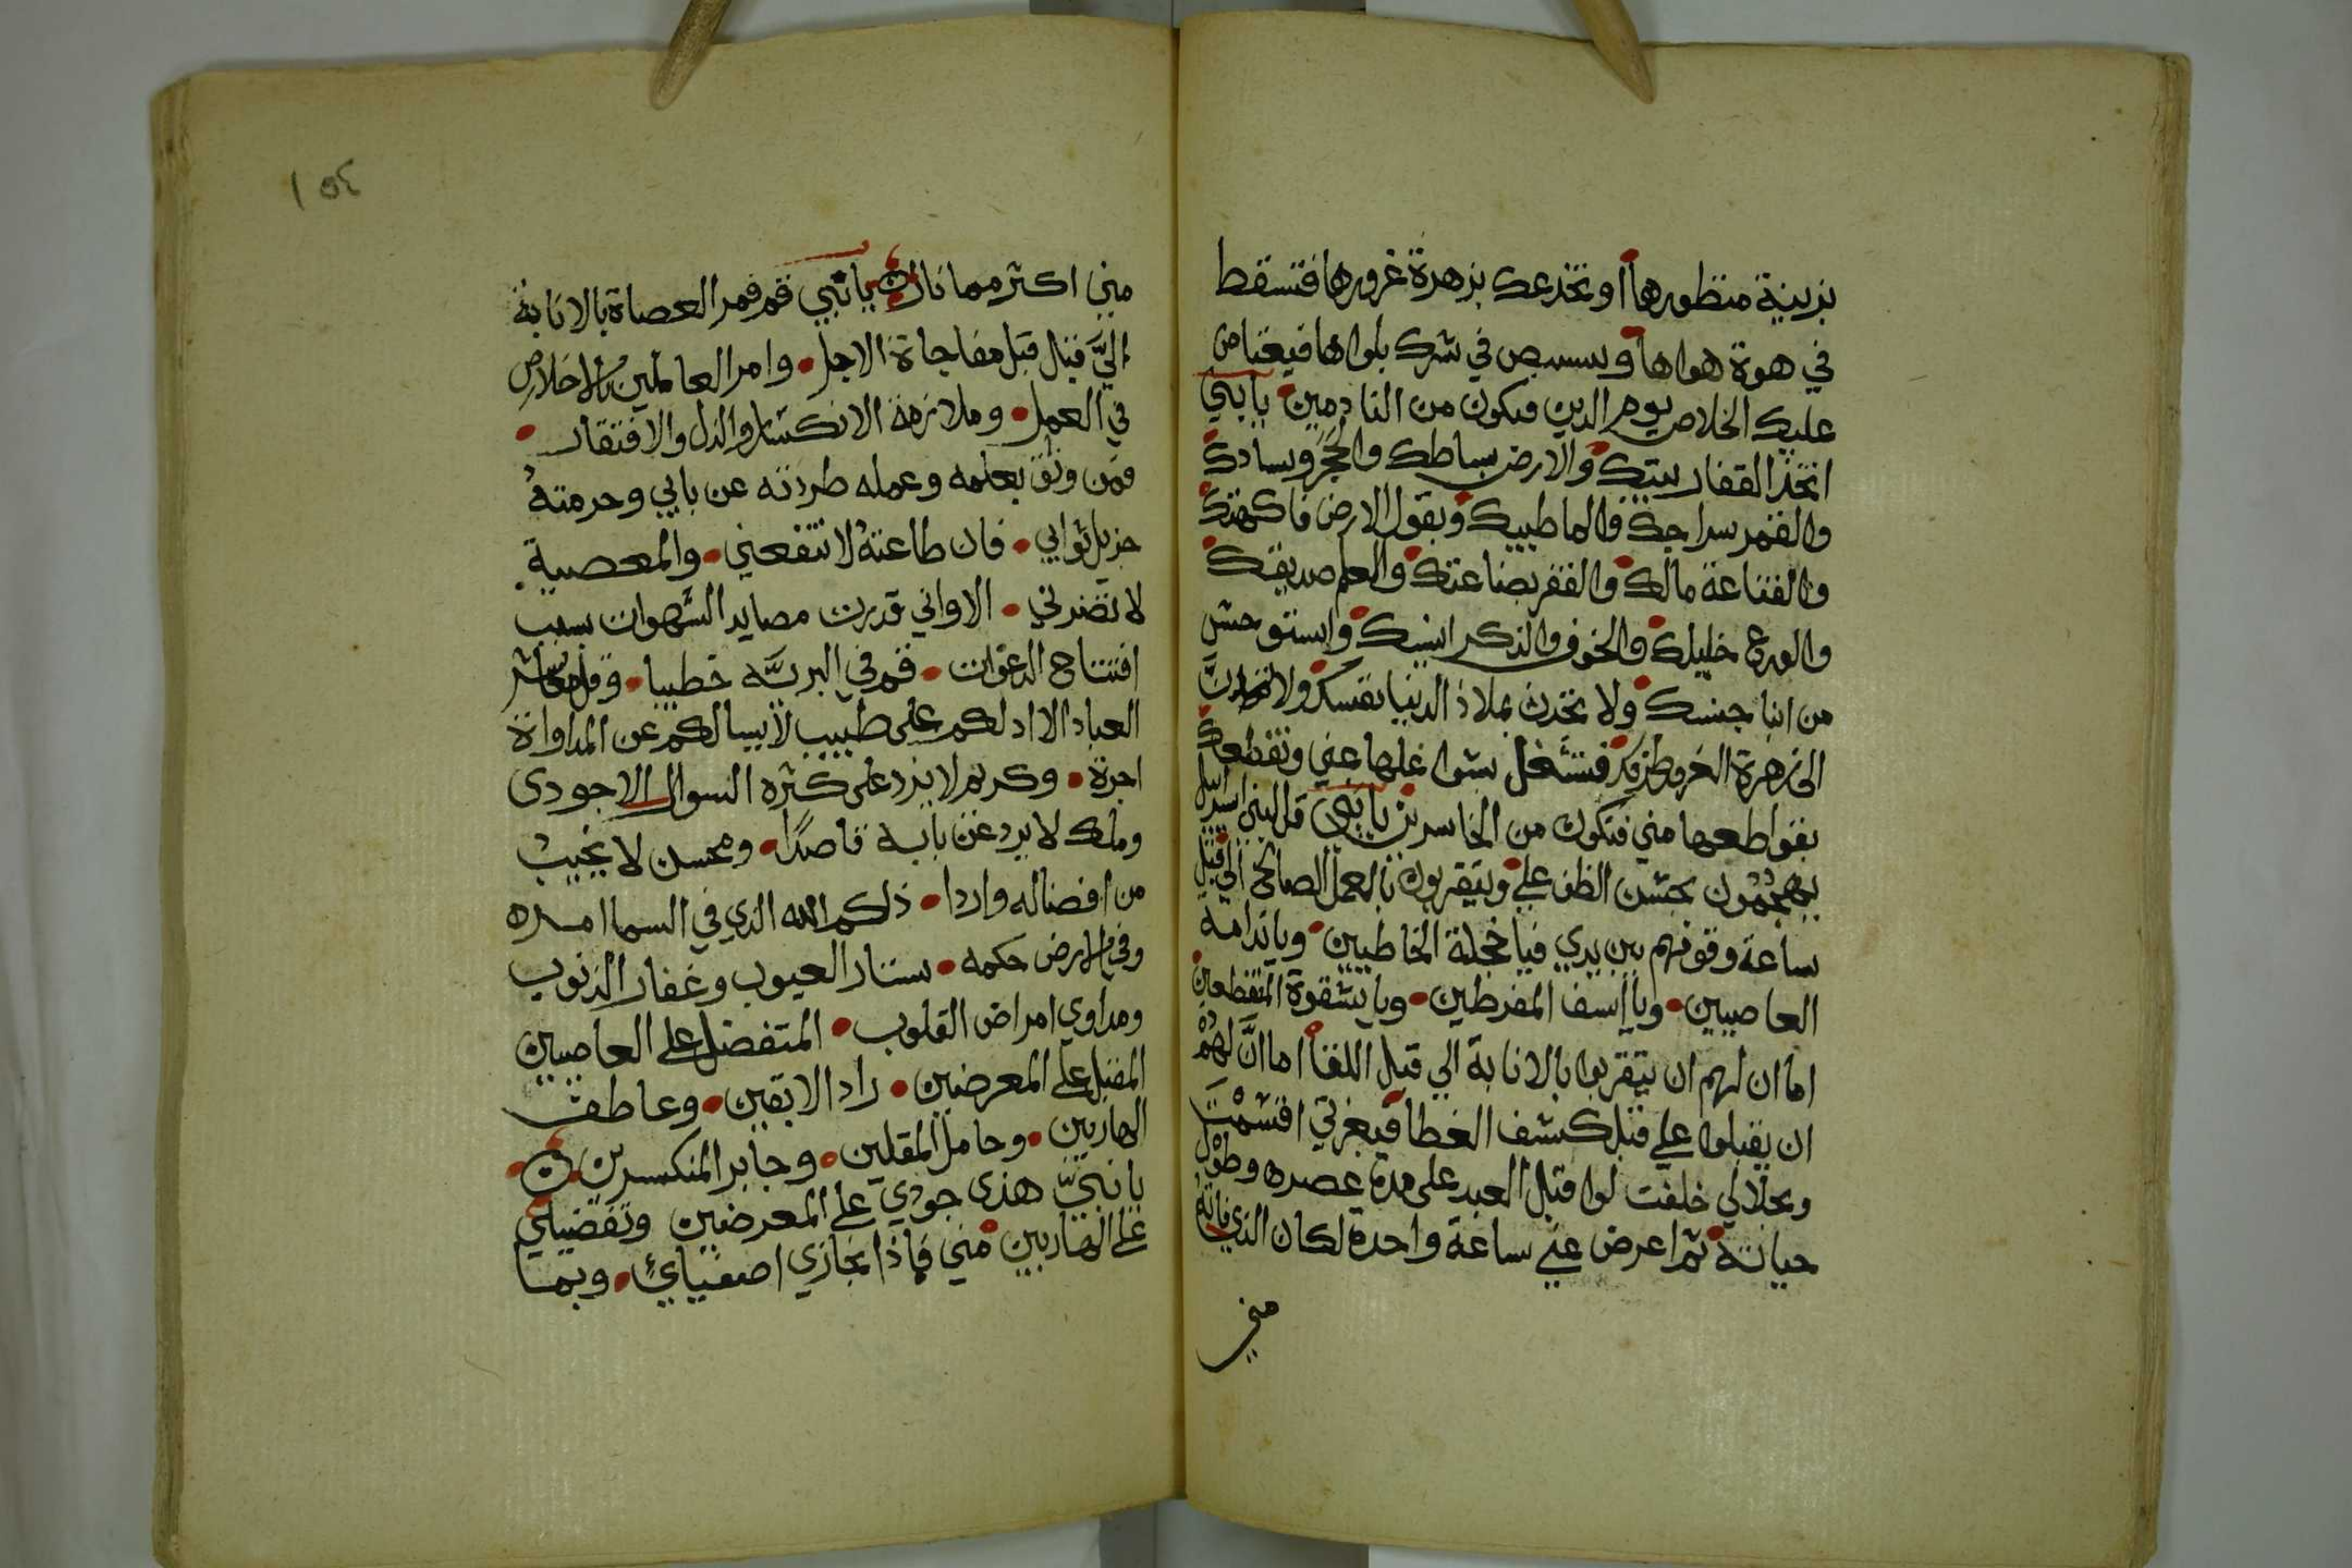 بزينة منظورها او تخدعك بزهرة غرورها فتسقط
في هوة هواها و في شرك بلواها فيعتاص
عليك الخلاص يوم الدين فتكون من النادمين يا نبي
اتخذ القفار بيتك والارض بساطك والحجر وسادك
والقمر سراجك والما طيبك وبقول الارض فاكهتك
والقناعة مالك والفقر بضاعتك والعلم صديقك
والورع خليلك والخوف والذكر انيسك واستوحش
من ابنا جنسك ولا تحدث بملاذ الدنيا نفسك ولا
الى زهرة الغرو طرفك فتشغل بشواغلها عني وتقطعك
بقواطعها مني فتكون من الخاسرين يا نبي قل لبني اسراييل
بحسن الظن علي ويتقربون بالعمل الصالح الي قبل
ساعة وقوفهم بين يدي فيا خجلة الخاطيين ويا ندامة
العاصيين ويا اسف المفرطين ويا شقوة المنقطعين
اما ان لهم ان يتقربوا بالانابة الي قبل اللقا اما ان لهم
ان يقبلوا علي قبل كشف الغطا فبعزتي اقسمت
وبجلالي حلفت لو اقبل العبد على مدة عصره وطول
حياته ثم اعرض عني ساعة واحدة لكان الذي فاته
مني
١٥٤
مني اكثر مما نال يا نبي قم فمر العصاة بالانابة
الي قبل مفاجاة الاجل وامر العالمين بالاخلاص
في العمل وملازمة الانكسار والذل والافتقار
فمن وثق بعلمه وعمله طردته عن بابي وحرمته
جزيل ثوابي فان طاعته لا تنفعني والمعصية
لا تضرني الا واني قدرت مصايد الشهوات بسبب
افتتاح الدعوات فقم في البرية خطيبا وقل معاشر
العباد الا ادلكم على طبيب لا يسالكم عن المداواة
اجرة وكريم لا يزد على كثرة السوال الا جودى
وملك لا يرد عن بابه قاصدا ومحسن لا يخيب
من افضاله واردا ذلكم الله الذي في السما امره
وفي الارض حكمه ستار العيوب وغفار الذنوب
ومداوي امراض القلوب المتفضل على العاصيين
المقبل على المعرضين راد الابقين وعاطف
الهاربين وحامل المقلين وجابر المنكسرين
يا نبي هذى جودي على المعرضين وتفضيلي
على الهاربين مني فماذا نجازي اصفياي وبما